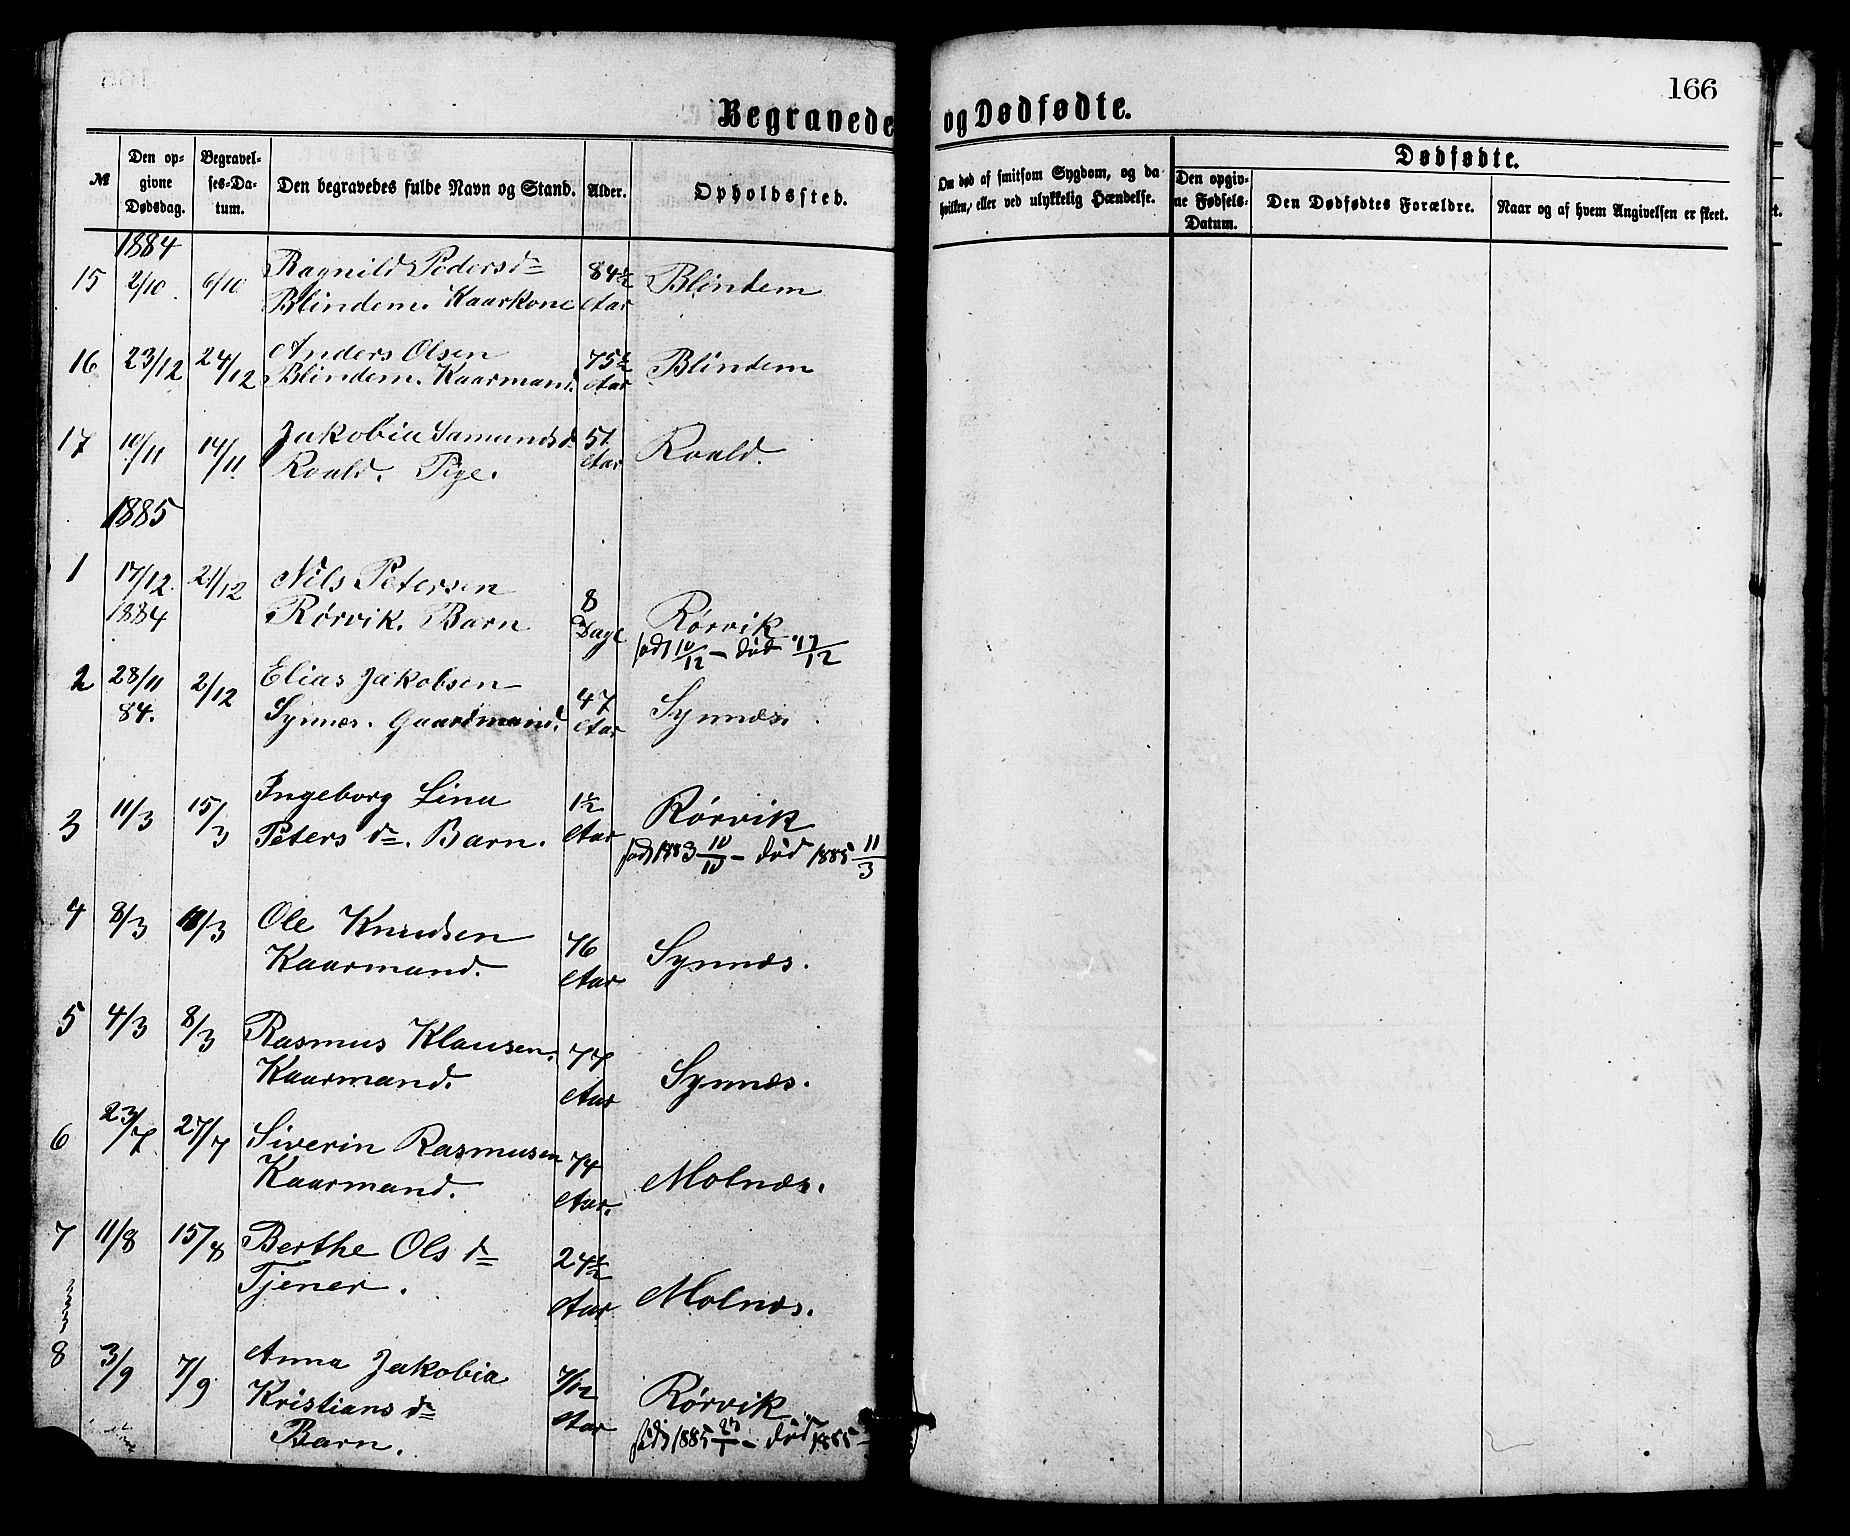 Begravede og Dødfødte.
166
№ Den opgivne Dødsdag. Begravelses-Datum. Den begravedes fulde Navn og Stand. Alder. Opholdssted. Om død af smitsom Sygdom, og da hvilken, eller ved ulykkelig Hændelse.
Dødfødte.
Den opgivne Fødsels-Datum. Den Dødfødtes Forældre. Naar og af hvem Angivelsen er skeet.
1884
15 2/10 6/10 Ragnild Pedersd 84½ Blindem
Blindem. Kaarkone Aar
16 23/12 24/12 Anders Olsen 75½ Blindem
Blindem. Kaarmand. Aar
17 10/11 14/11 Jakobia Samundsd. 51 Roald.
Roald. Pige. Aar
1885
1 17/12 21/12 Nils Petersen
1884 Rørvik. Barn 8 Dage Rørvik
født 10/12 – død 17/12
2 28/11 2/12 Elias Jakobsen 47 Synnæs.
84. Synnæs. Gaardmand. Aar
3 11/3 15/3 Ingeborg Lina 1½ Rørvik
Peters d. Barn. Aar
født 1883 10/10 – død 1885 11/3
4 8/3 /3 Ole Knudsen 76 Synnæs.
Kaarmand. Aar
5 4/3 8/3 Rasmus Klausen. 77 Synnæs.
Kaarmand. Aar
6 23/7 27/7 Siverin Rasmusen 74 Molnæs.
Kaarmand. Aar.
7 11/8 15/8 Berthe Ols d 24½ Molnæs.
Tjener. Aar
8 3/9 7/9 Anna Jakobia 7/12 Rørvik
Kristians d Aar
Barn.
født 1885 – død 1885